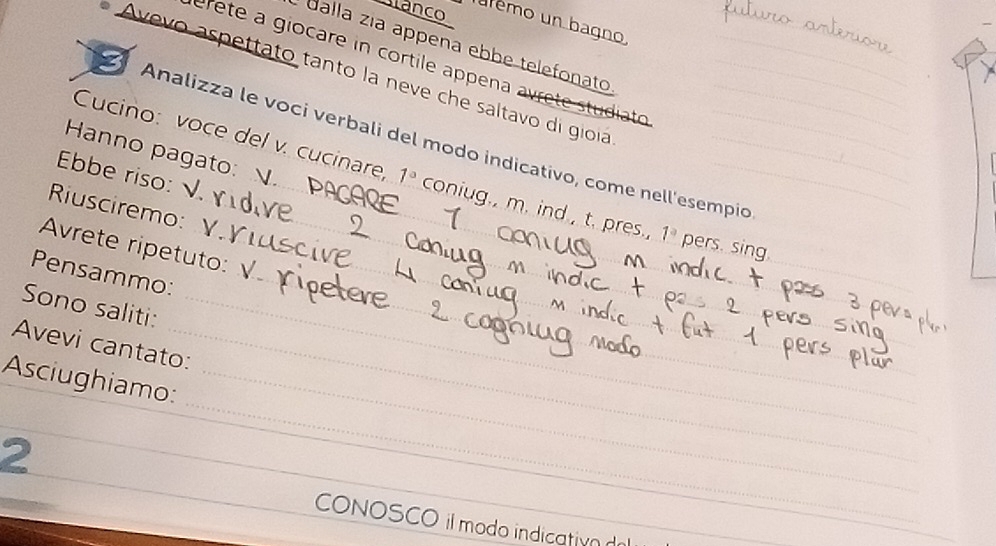 lanco
aremo un bagno.
dalla zia appena ebbe telefonato.
erete a giocare in cortile appena avrete studiato
futuro anteriore
Avevo aspettato tanto la neve che saltavo di gioia.
3 Analizza le voci verbali del modo indicativo, come nell'esempio.
Cucino: voce del v. cucinare, 1ª coniug., m. ind., t. pres., 1ª pers. sing.
Hanno pagato: V. PAGARE 1 coniug m indic. t pass 3 pers plur
Ebbe riso: V. ridire 2 coniug m indic t pas 2 pers sing
Riusciremo: V. riuscire 4 coniug m indic t fut 1 pers plur
Avrete ripetuto: V. ripetere 2 cogniug modo
Pensammo:
Sono saliti:
Avevi cantato:
Asciughiamo:
2
CONOSCO il modo indicativo